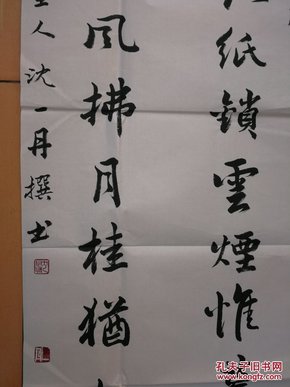 纸鎖雲煙惟
風拂月桂猶
人沈一丹撰书
孔夫子旧书网